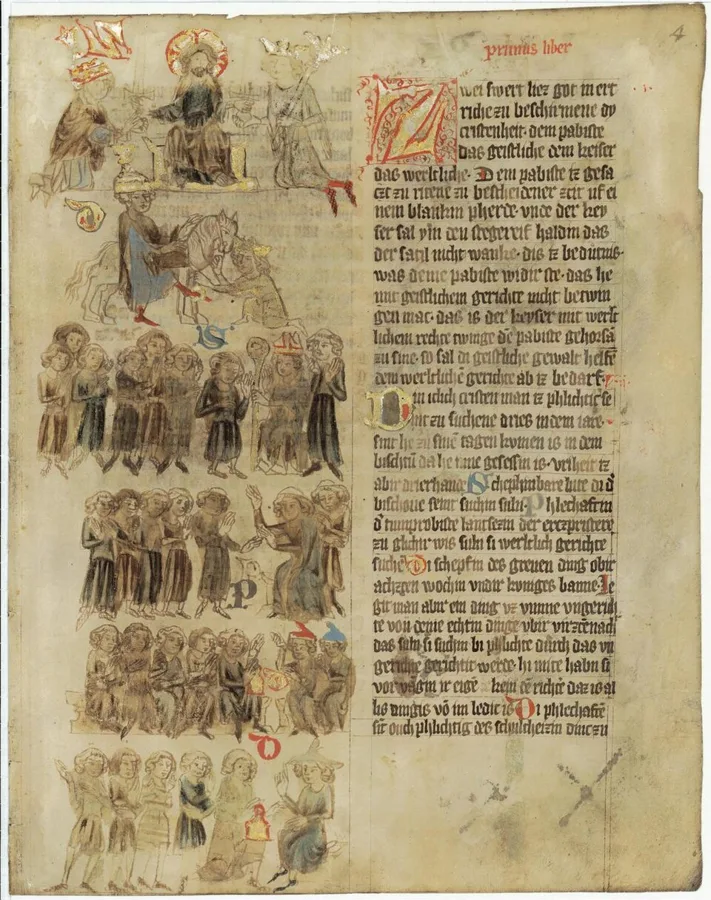 4
primus liber
Zwei swert liez got in ert
riche zu beschirmene dy
cristenheit· dem pabiste
das geistliche dem keiser
das werltliche· Dem pabiste iz gesa
czt zu ritene zu bescheidener zcit uf ei
nem blankin pherde· vnde der key
ser sal ym den stegereif haldin das
der satil nicht wanke· dis iz bedutnis·
was deme pabiste widir ste· das he
mit geistlichem gerichte nicht betwin
gen mac· das is der keyser mit werlt
lichem rechte twinge dē pabiste gehorsā
zu sine· so sal di geistliche gewalt helfē
dem werltlichē gerichte ab iz bedarf·
D iclich cristen man iz phlichtic se
zu suchene dries in dem iare·
sint he zu sinē tagen kumen is in dem
bischtū da he inne gesessin is· vriheit iz
abir drierhande Schephinbare lute di d'
bischoue senit suchin suln· Phlechaftin
d' tumprobiste lantsezin der erczpristere
zu glicher wis suln si werltlich gerichte
suchē Di schepfin des greuen ding obir
achzgen wochin vndir kuniges banne· Le
git man abir ein ding vz vmme vngerich
te von deme echtin dinge vbir virzcēnach
das suln si suchin bi phlichte durch das vn
gerichte gerichtit werde· hi mite habn si
vorwagin ir eigē kein dē richte daz is al
lis dingis vō im ledic is Di phlechaftē
sīt ouch phlichtig des schultheizin dinc zu
S
P
D